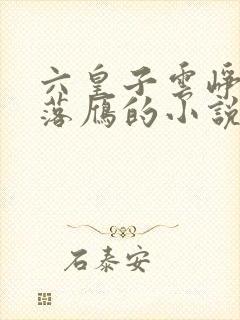 六皇子雲崢
落雁的小說
石泰安